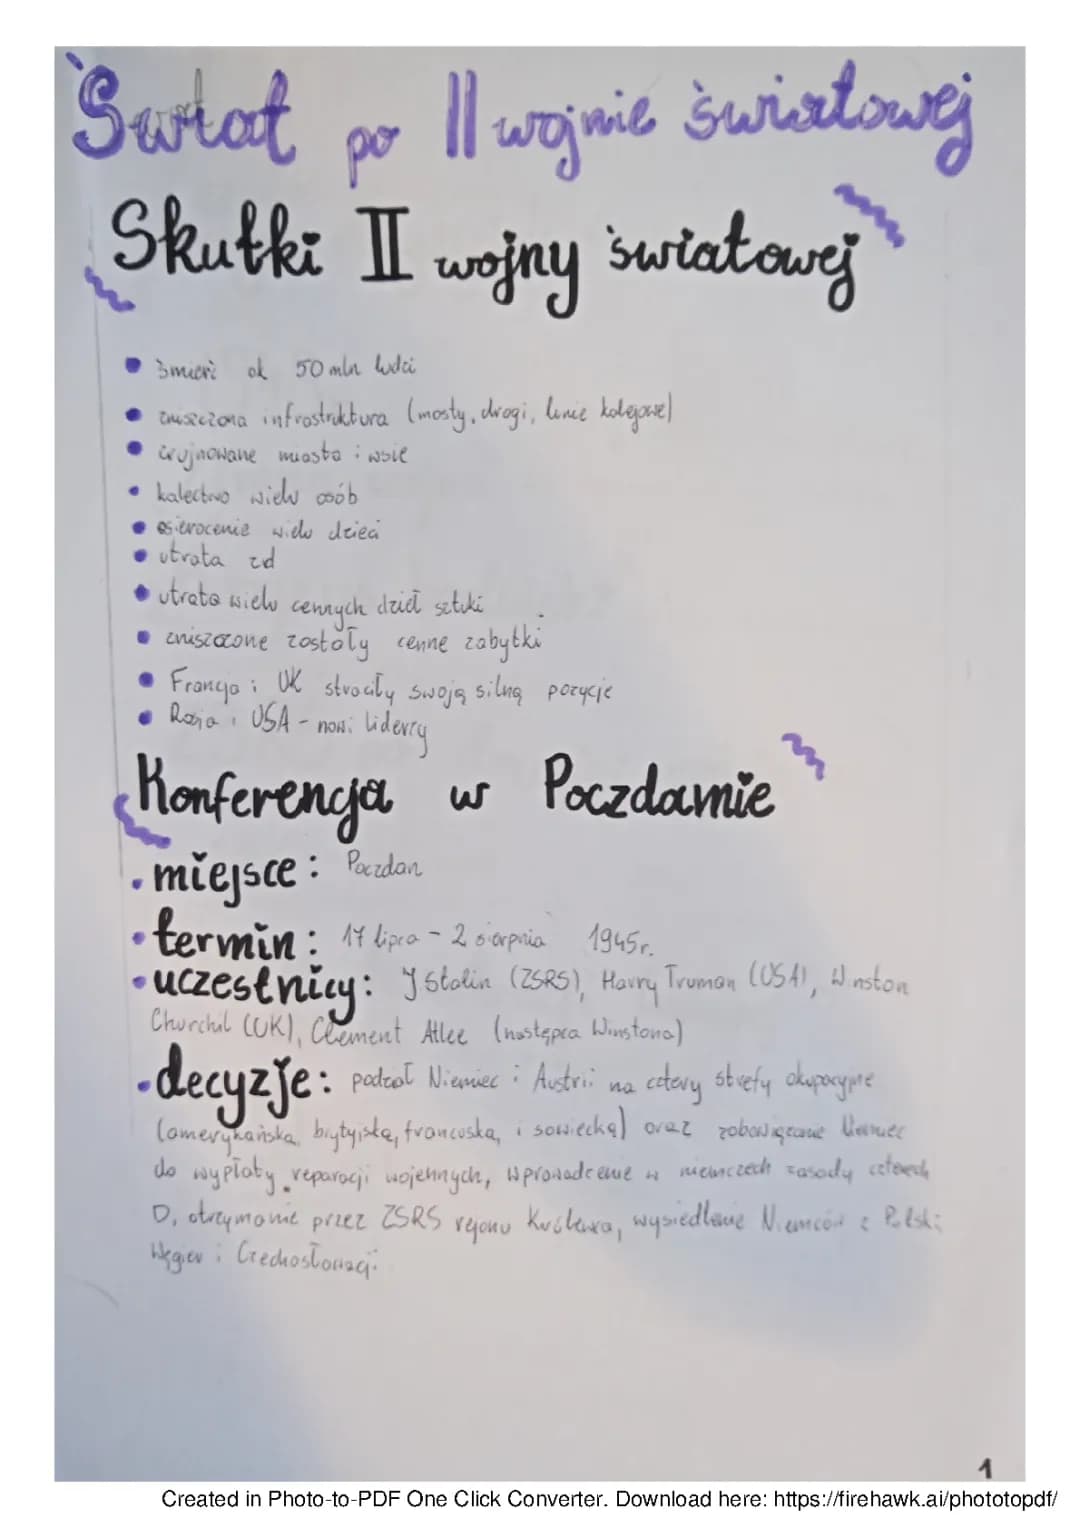 Świat po II wojnie światowej
Skutki II wojny światowej
śmierć ok 50 mln ludzi
zniszczona infrastruktura (mosty, drogi, linie kolejowe)
zrujnowane miasta i wsie
kalectwo wielu osób
osierocenie wielu dzieci
utrata
utrata wielu cennych dzieł sztuki
zniszczone zostały cenne zabytki
Francja i UK straciły swoją silną pozycję
Rosja i USA - nowi liderzy
Konferencja w Poczdamie
miejsce: Poczdam
termin: 17 lipca - 2 sierpnia 1945r.
uczestnicy: J.Stalin (ZSRS), Harry Truman (USA), Winston
Churchil (UK), Clement Atlee (następca Winstona)
decyzje: podział Niemiec i Austrii na cztery strefy okupacyjne
(amerykańska, brytyjska, francuska, i sowiecka) oraz zobowiązanie Niemiec
do wypłaty reparacji wojennych, wprowadzenie w niemczech zasady czterech
D, otrzymanie przez ZSRS rejonu Królewca, wysiedlenie Niemców z Polski
Węgier i Czechosłowacji
1
Created in Photo-to-PDF One Click Converter. Download here: https://firehawk.ai/phototopdf/